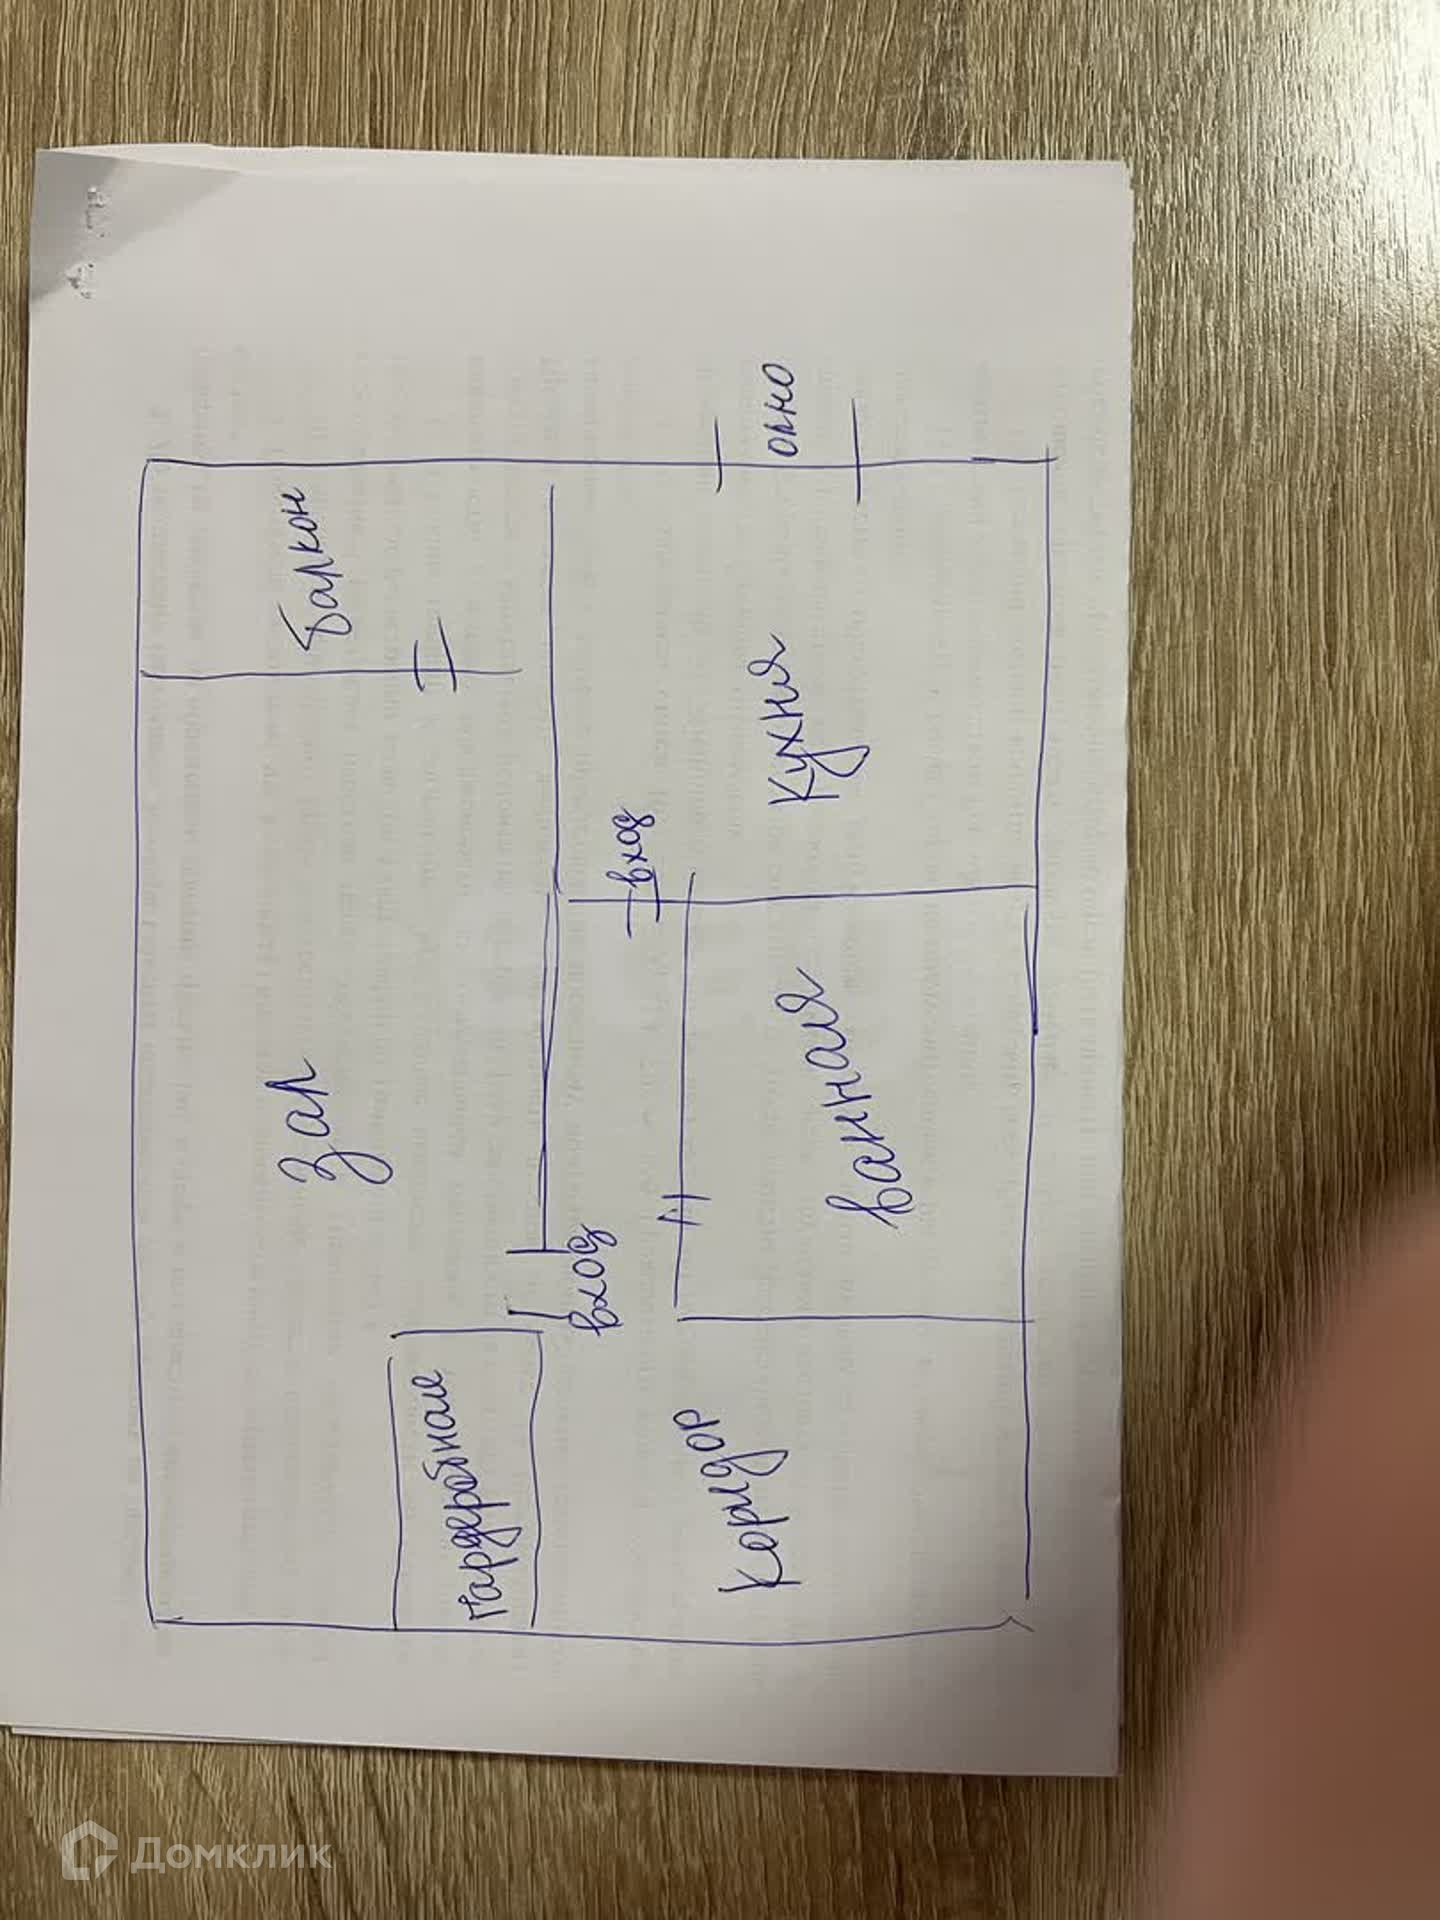 Балкон
Зал
Гардеробная
вход
вход
окно
Кухня
Ванная
Коридор
Домклик